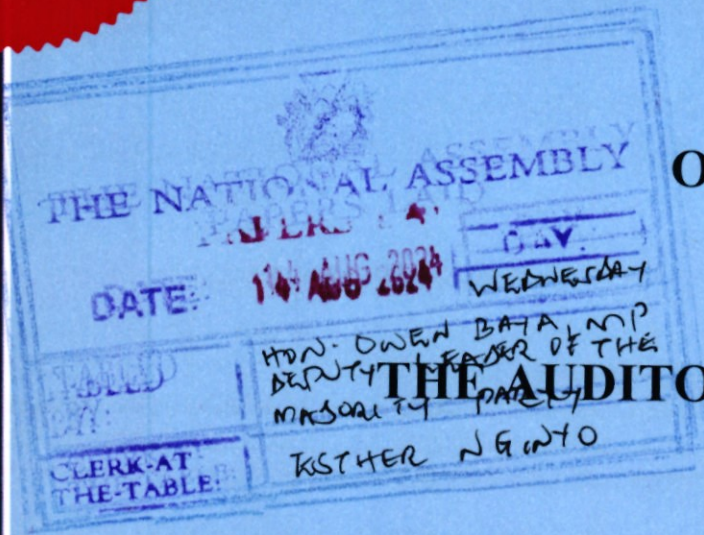 THE NATIONAL ASSEMBLY
PAPERS LAID
DATE: 14 AUG 2024 DAY.
WEDNESDAY
TABLED
BY:
HON. OWEN BAYA, MP
DEPUTY LEADER OF THE
MAJORITY PARTY
THE AUDITO
CLERK-AT
THE-TABLE:
ESTHER NGINYO
O